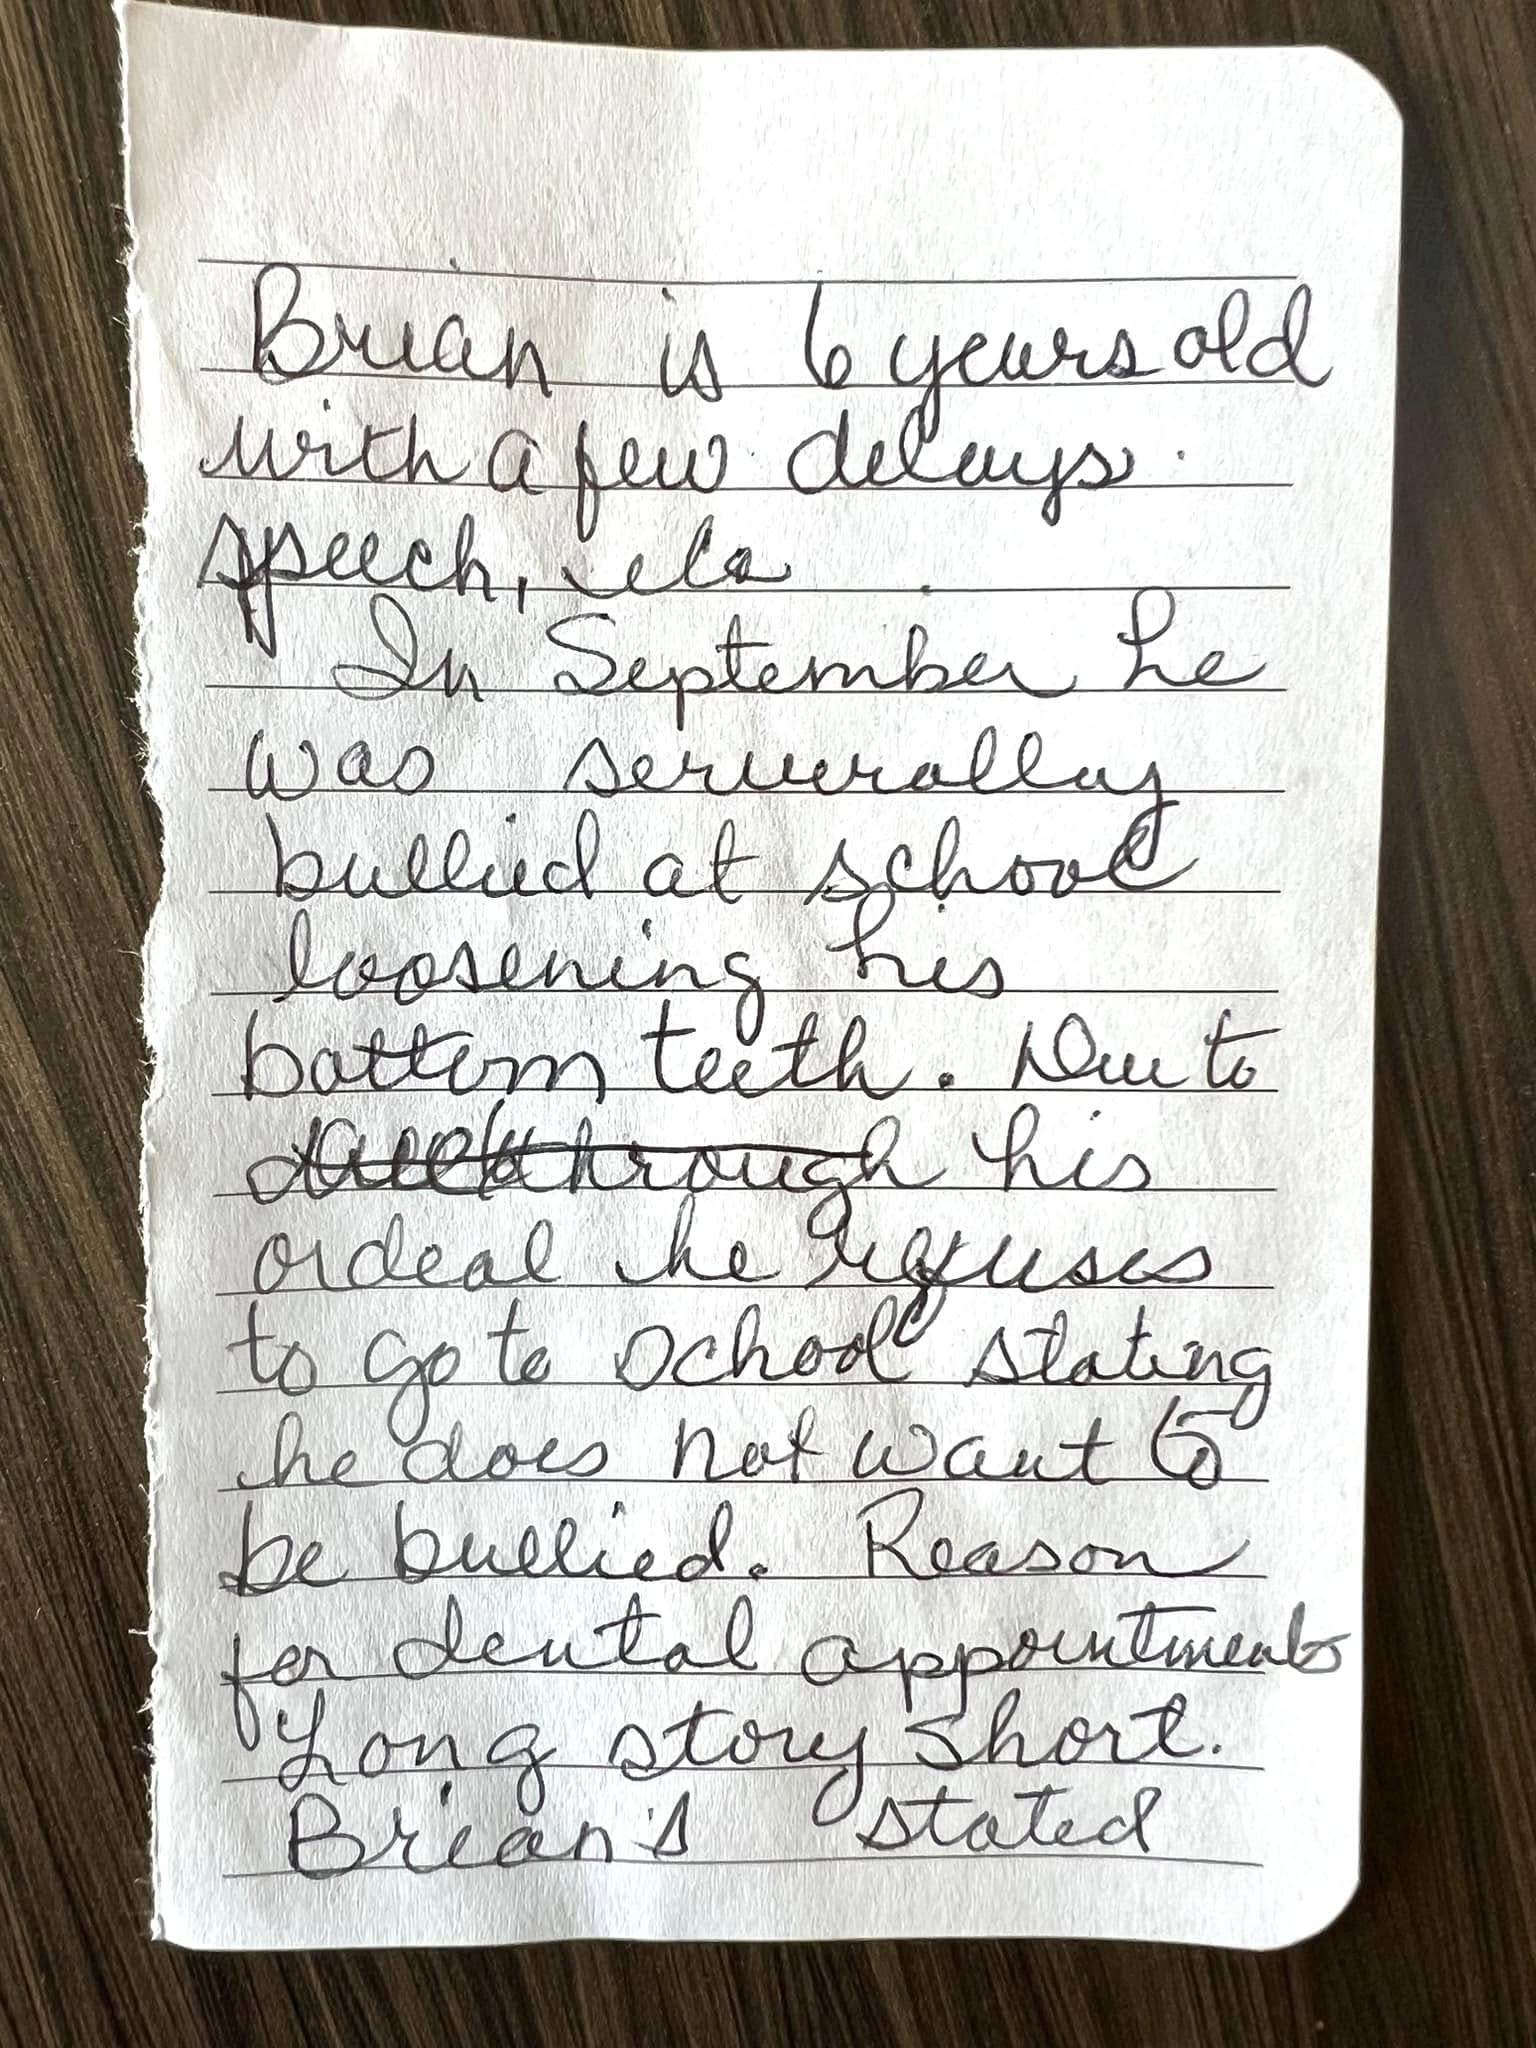 Brian is 6 years old
with a few delays.
speech, etc
In September he
was serverally
bullied at school
loosening his
bottom teeth. Due to
through his
ordeal he refuses
to go to school stating
he does not want to
be bullied. Reason
for dental appointments
Long story short.
Brian's stated